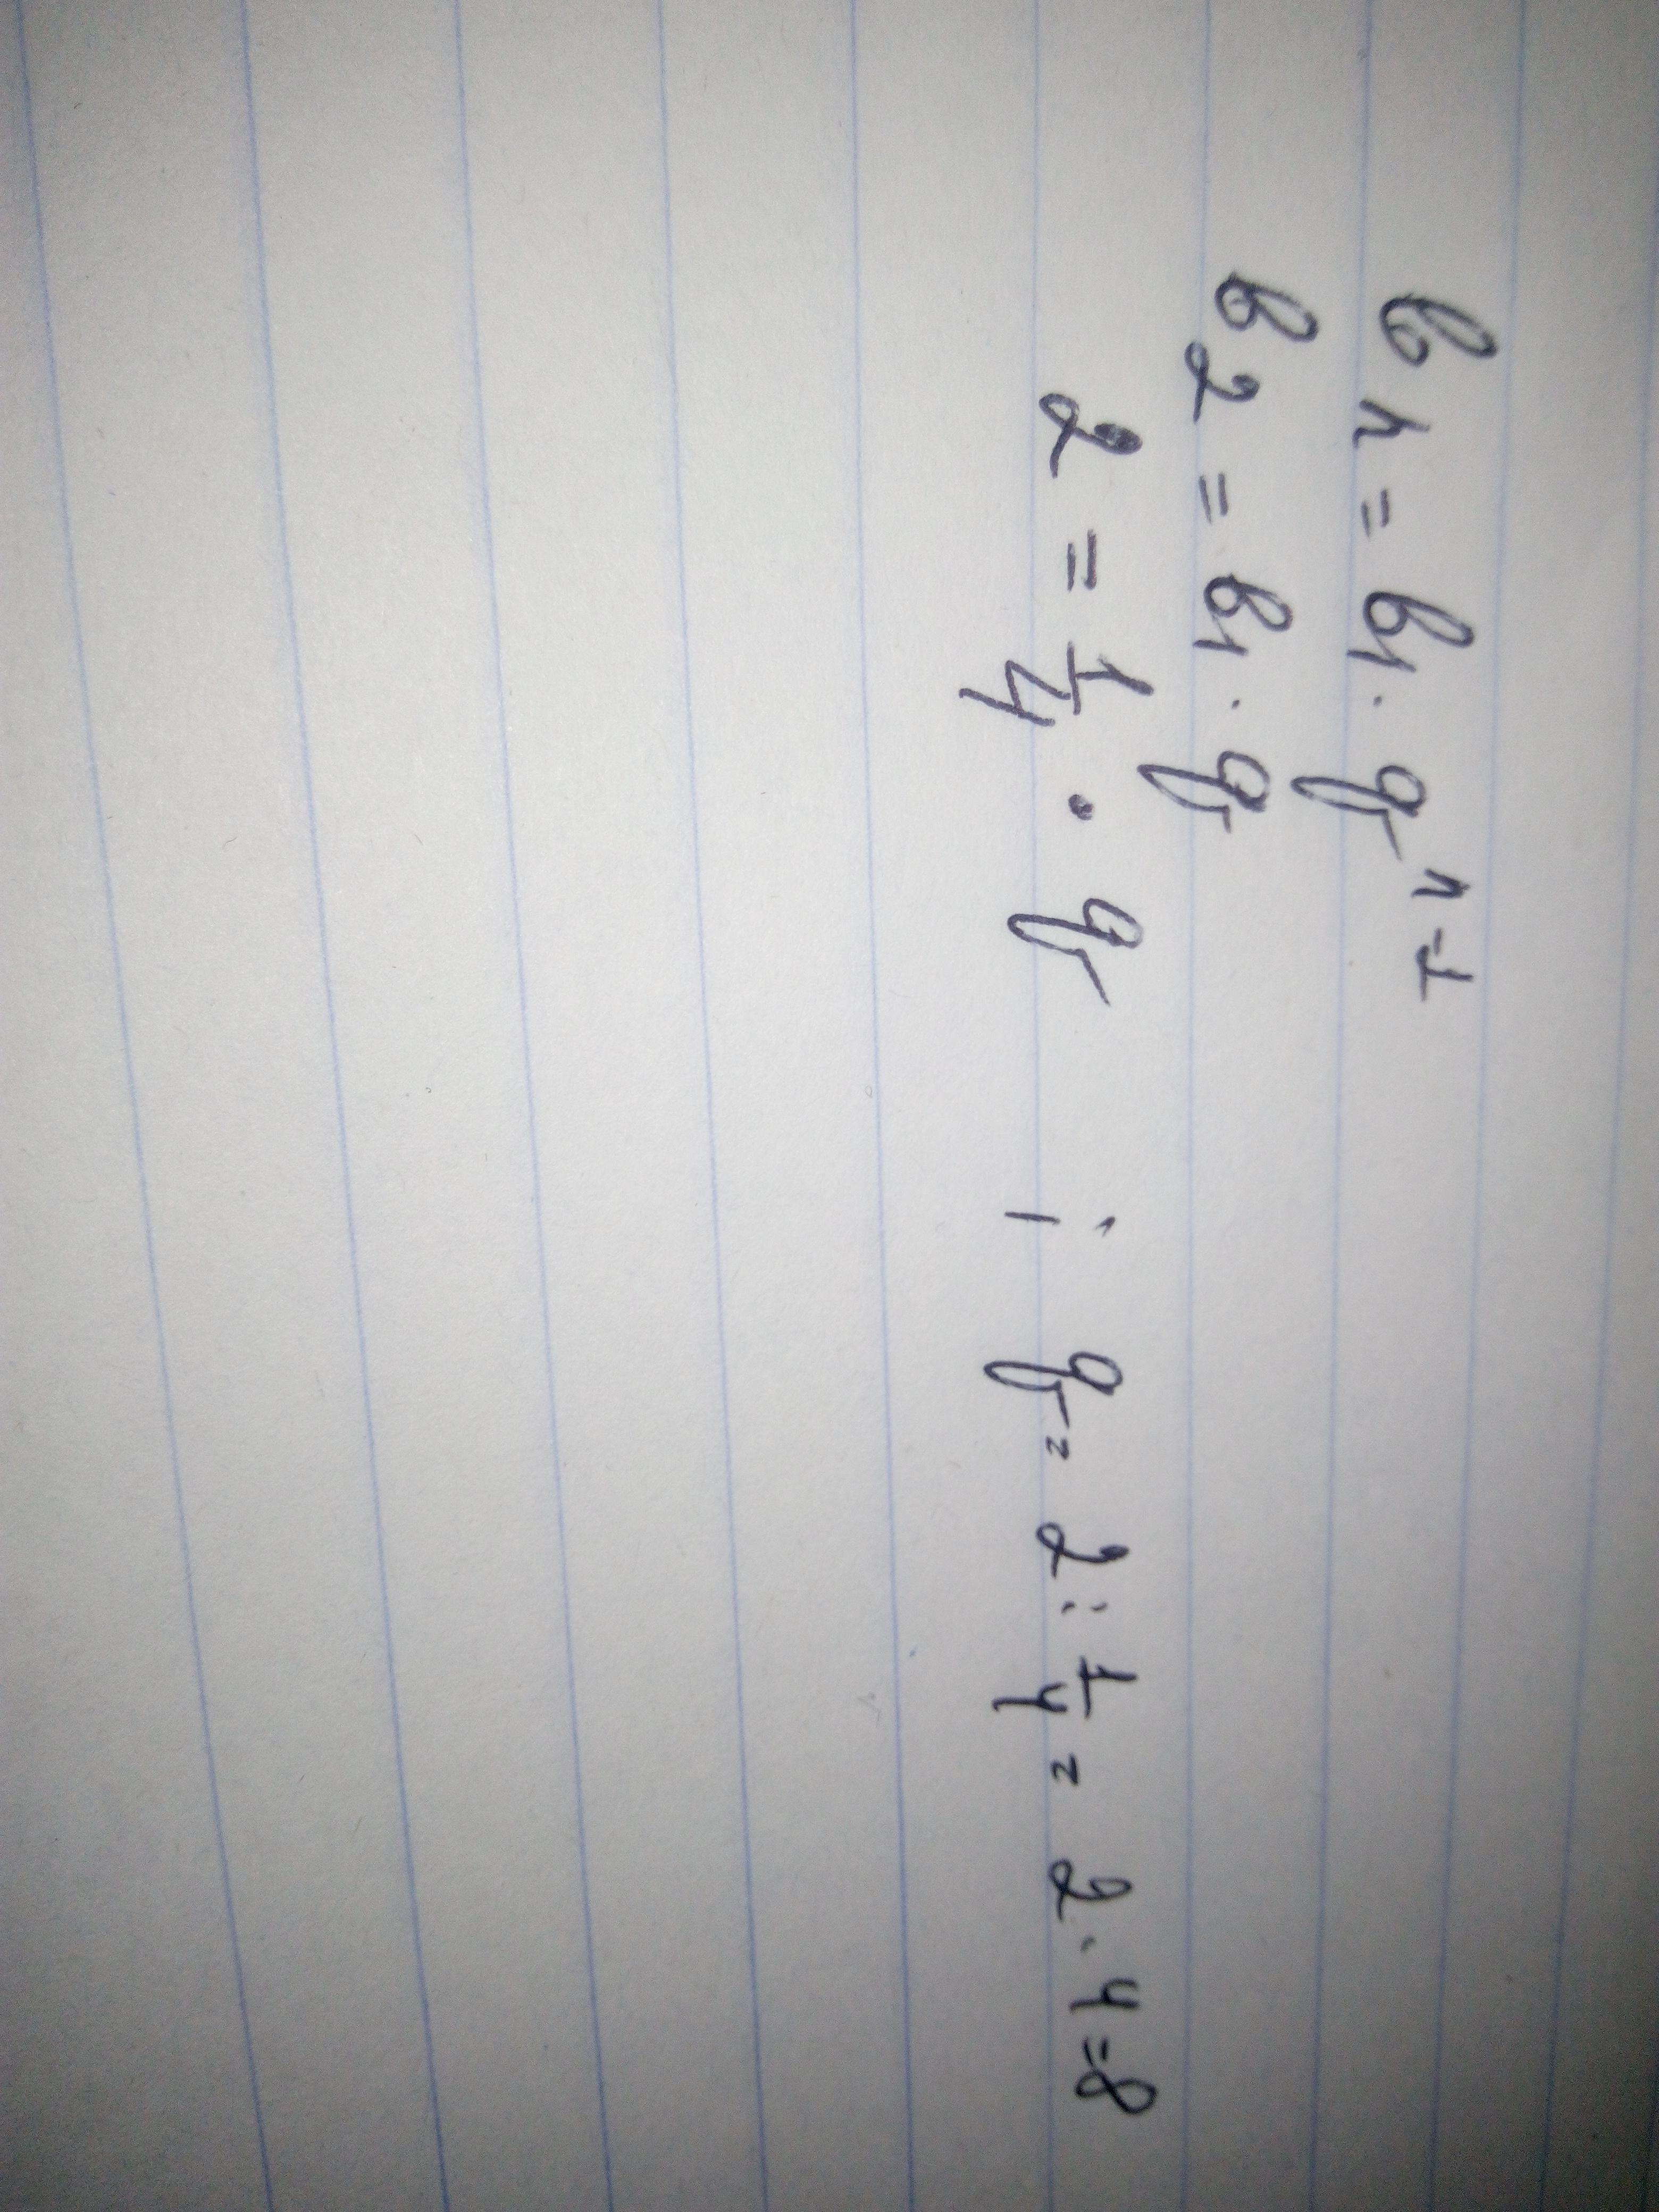 bn = b1 · q^n-1
b2 = b1 · q
2 = 1/4 · q ; q = 2 : 1/4 = 2 · 4 = 8